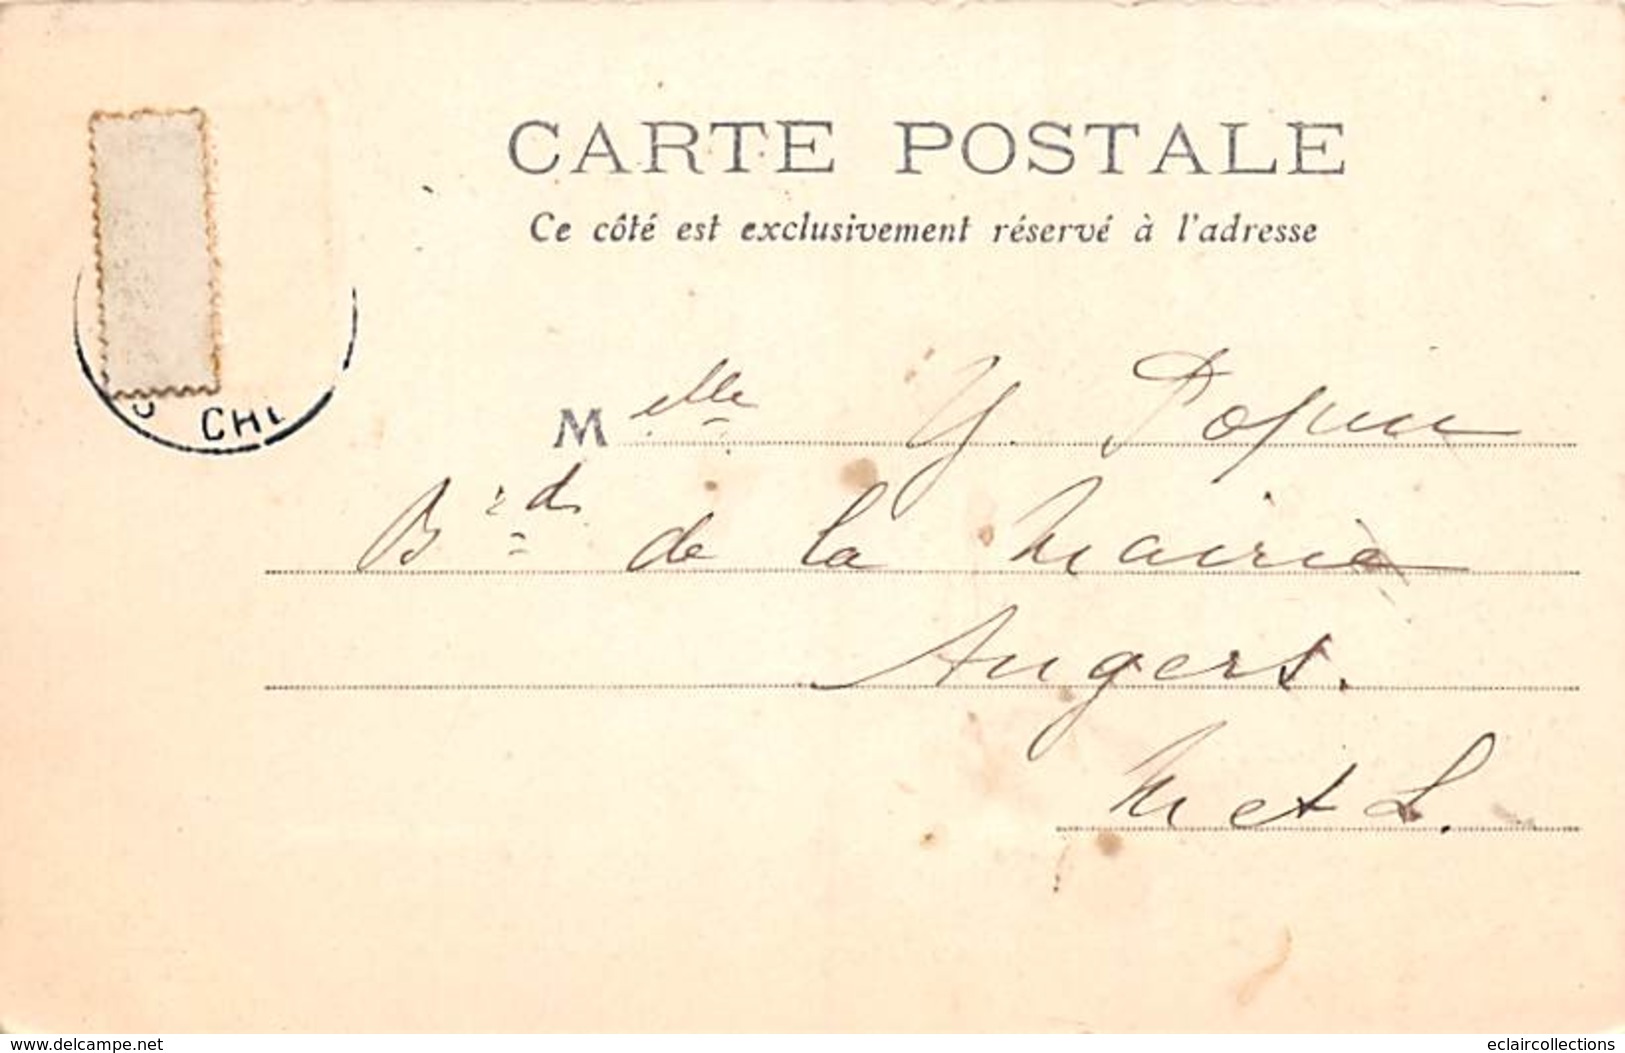 CARTE POSTALE
Ce côté est exclusivement réservé à l'adresse
CHI
Melle Y. Popin
Bd de la Mairie
Angers.
M et L.
www.delcampe.net
eclaircollections